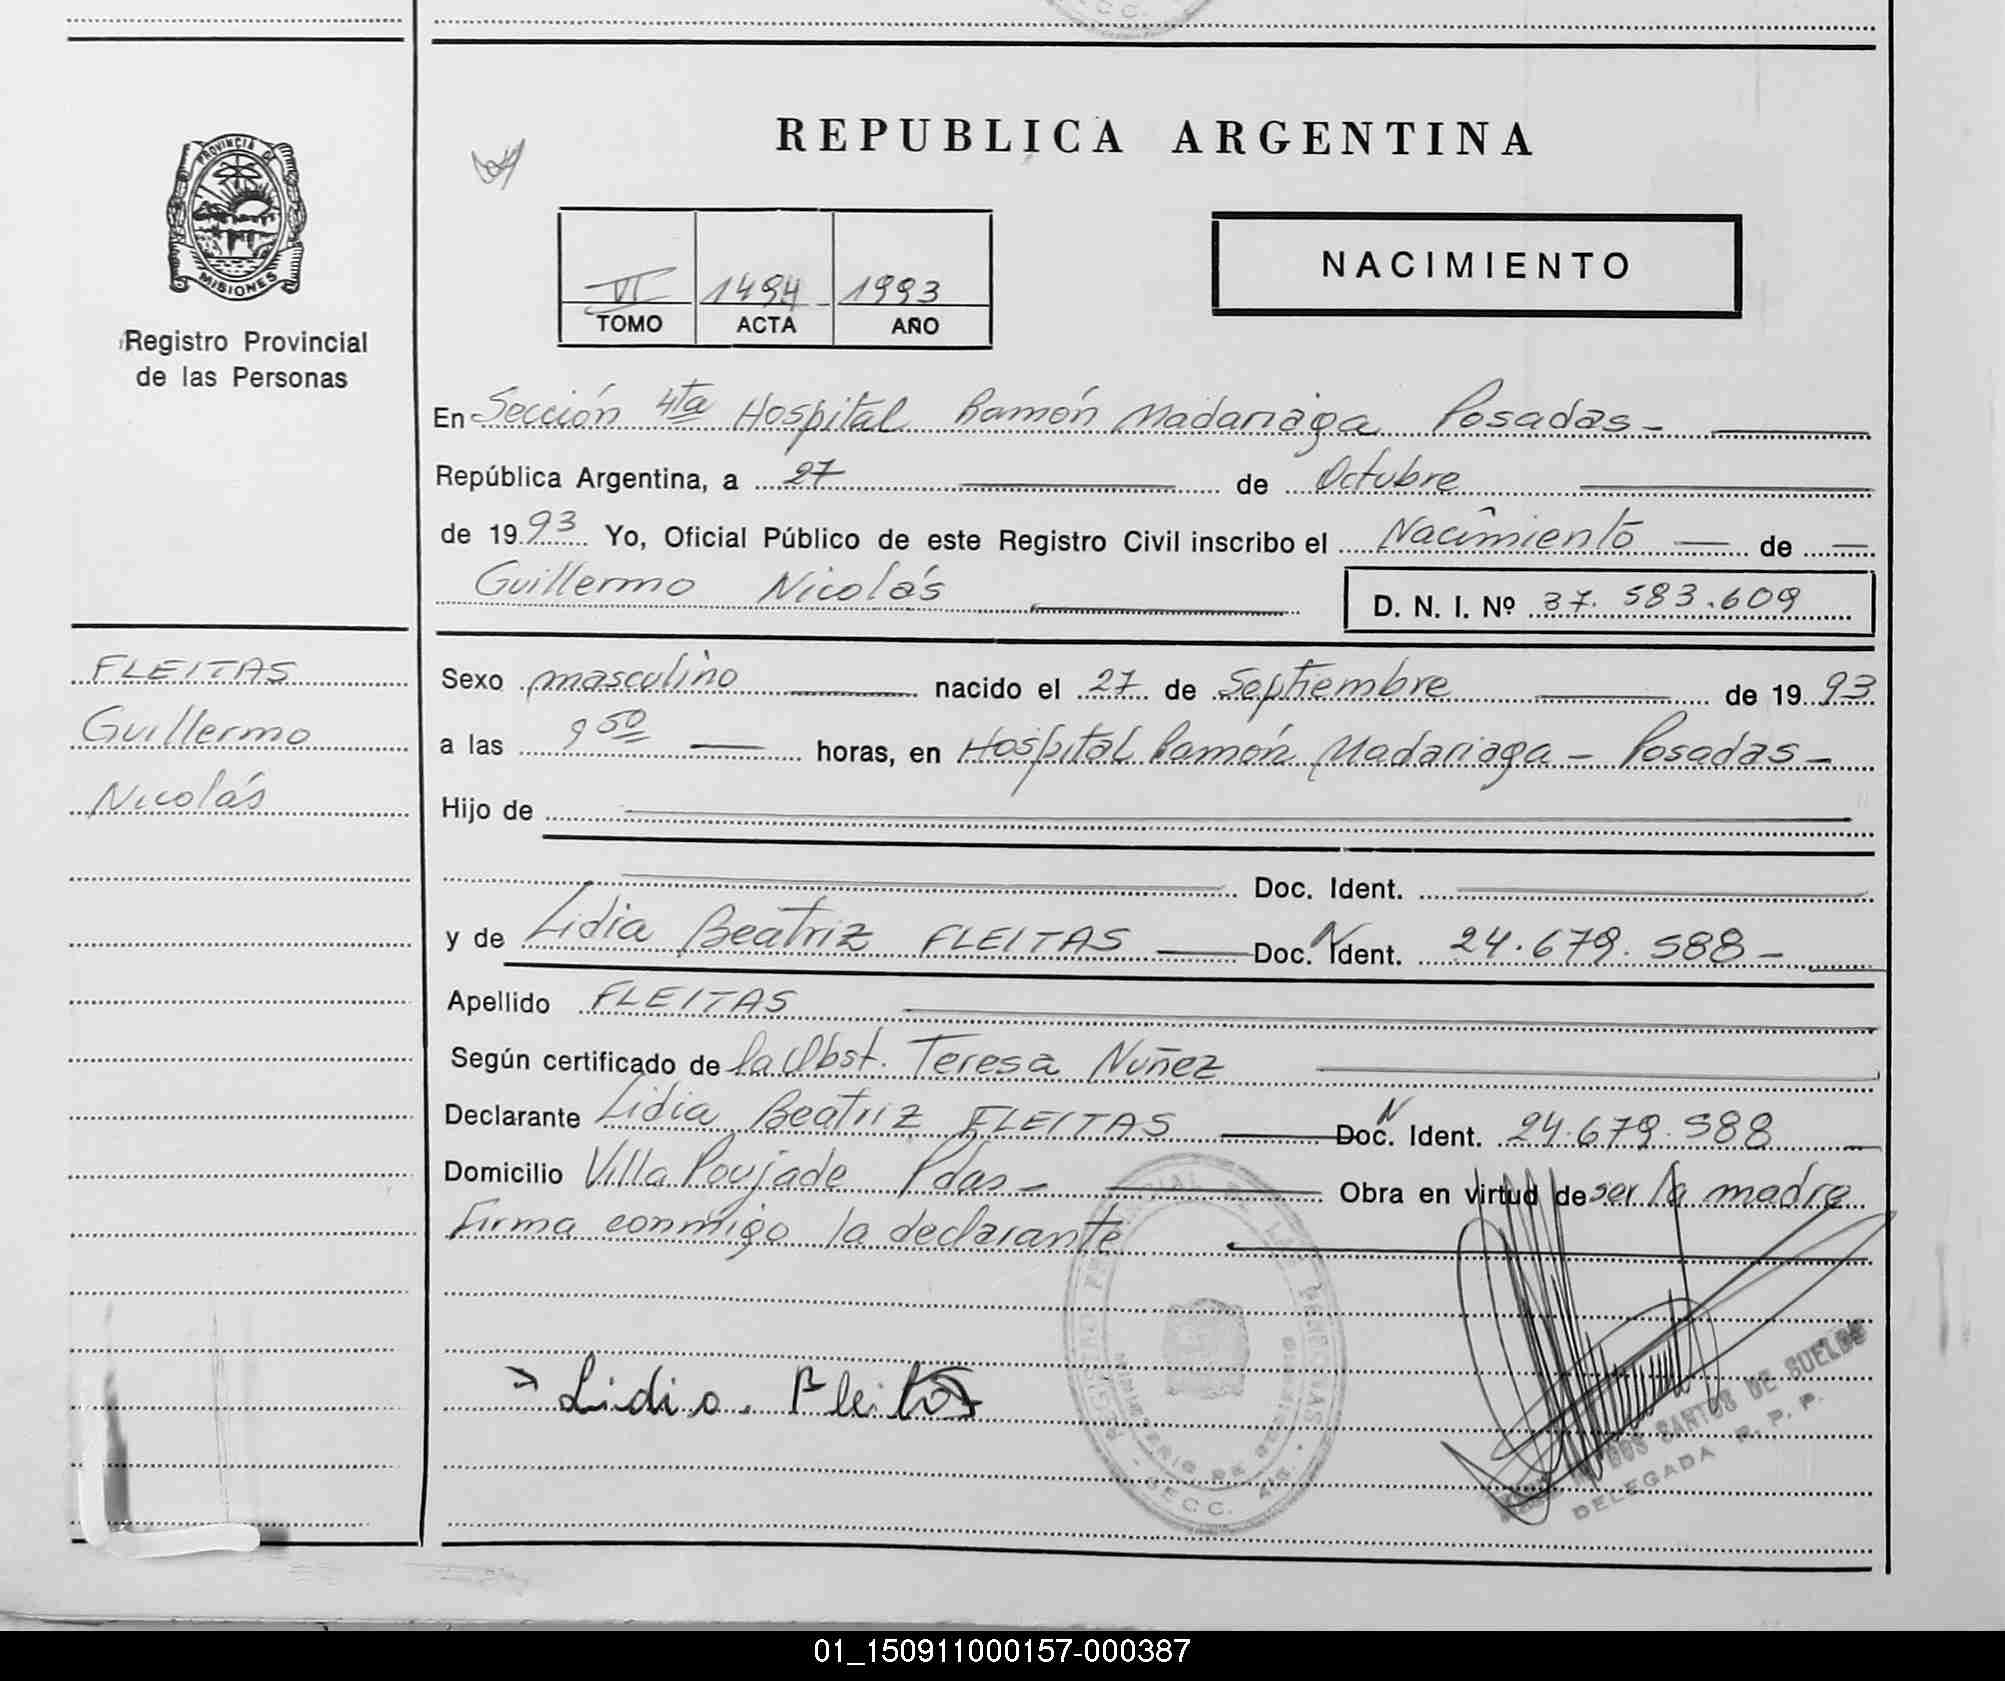 REPUBLICA ARGENTINA
PROVINCIA DE
MISIONES
Registro Provincial
de las Personas
VI 1494 1993
TOMO ACTA AÑO
NACIMIENTO
En Sección 4ta Hospital Ramón Madariaga Posadas -
República Argentina, a 27 de Octubre
de 1993 Yo, Oficial Público de este Registro Civil inscribo el Nacimiento de
Guillermo Nicolás D. N. I. Nº 37.583.609
FLEITAS
Guillermo
Nicolás
Sexo masculino nacido el 27 de Septiembre de 1993
a las 9 50 horas, en Hospital Ramón Madariaga - Posadas -
Hijo de
Doc. Ident.
y de Lidia Beatriz FLEITAS Doc. N Ident. 24.679.588 -
Apellido FLEITAS
Según certificado de la Obst. Teresa Nuñez
Declarante Lidia Beatriz FLEITAS Doc. N Ident. 24.679.588
Domicilio Villa Poujade Pdas - Obra en virtud de ser la madre
Firma conmigo la declarante
Lidia Fleitas
SECC. 4ta.
DOS SANTOS DE SUELDO
DELEGADA R. P. P.
01_150911000157-000387